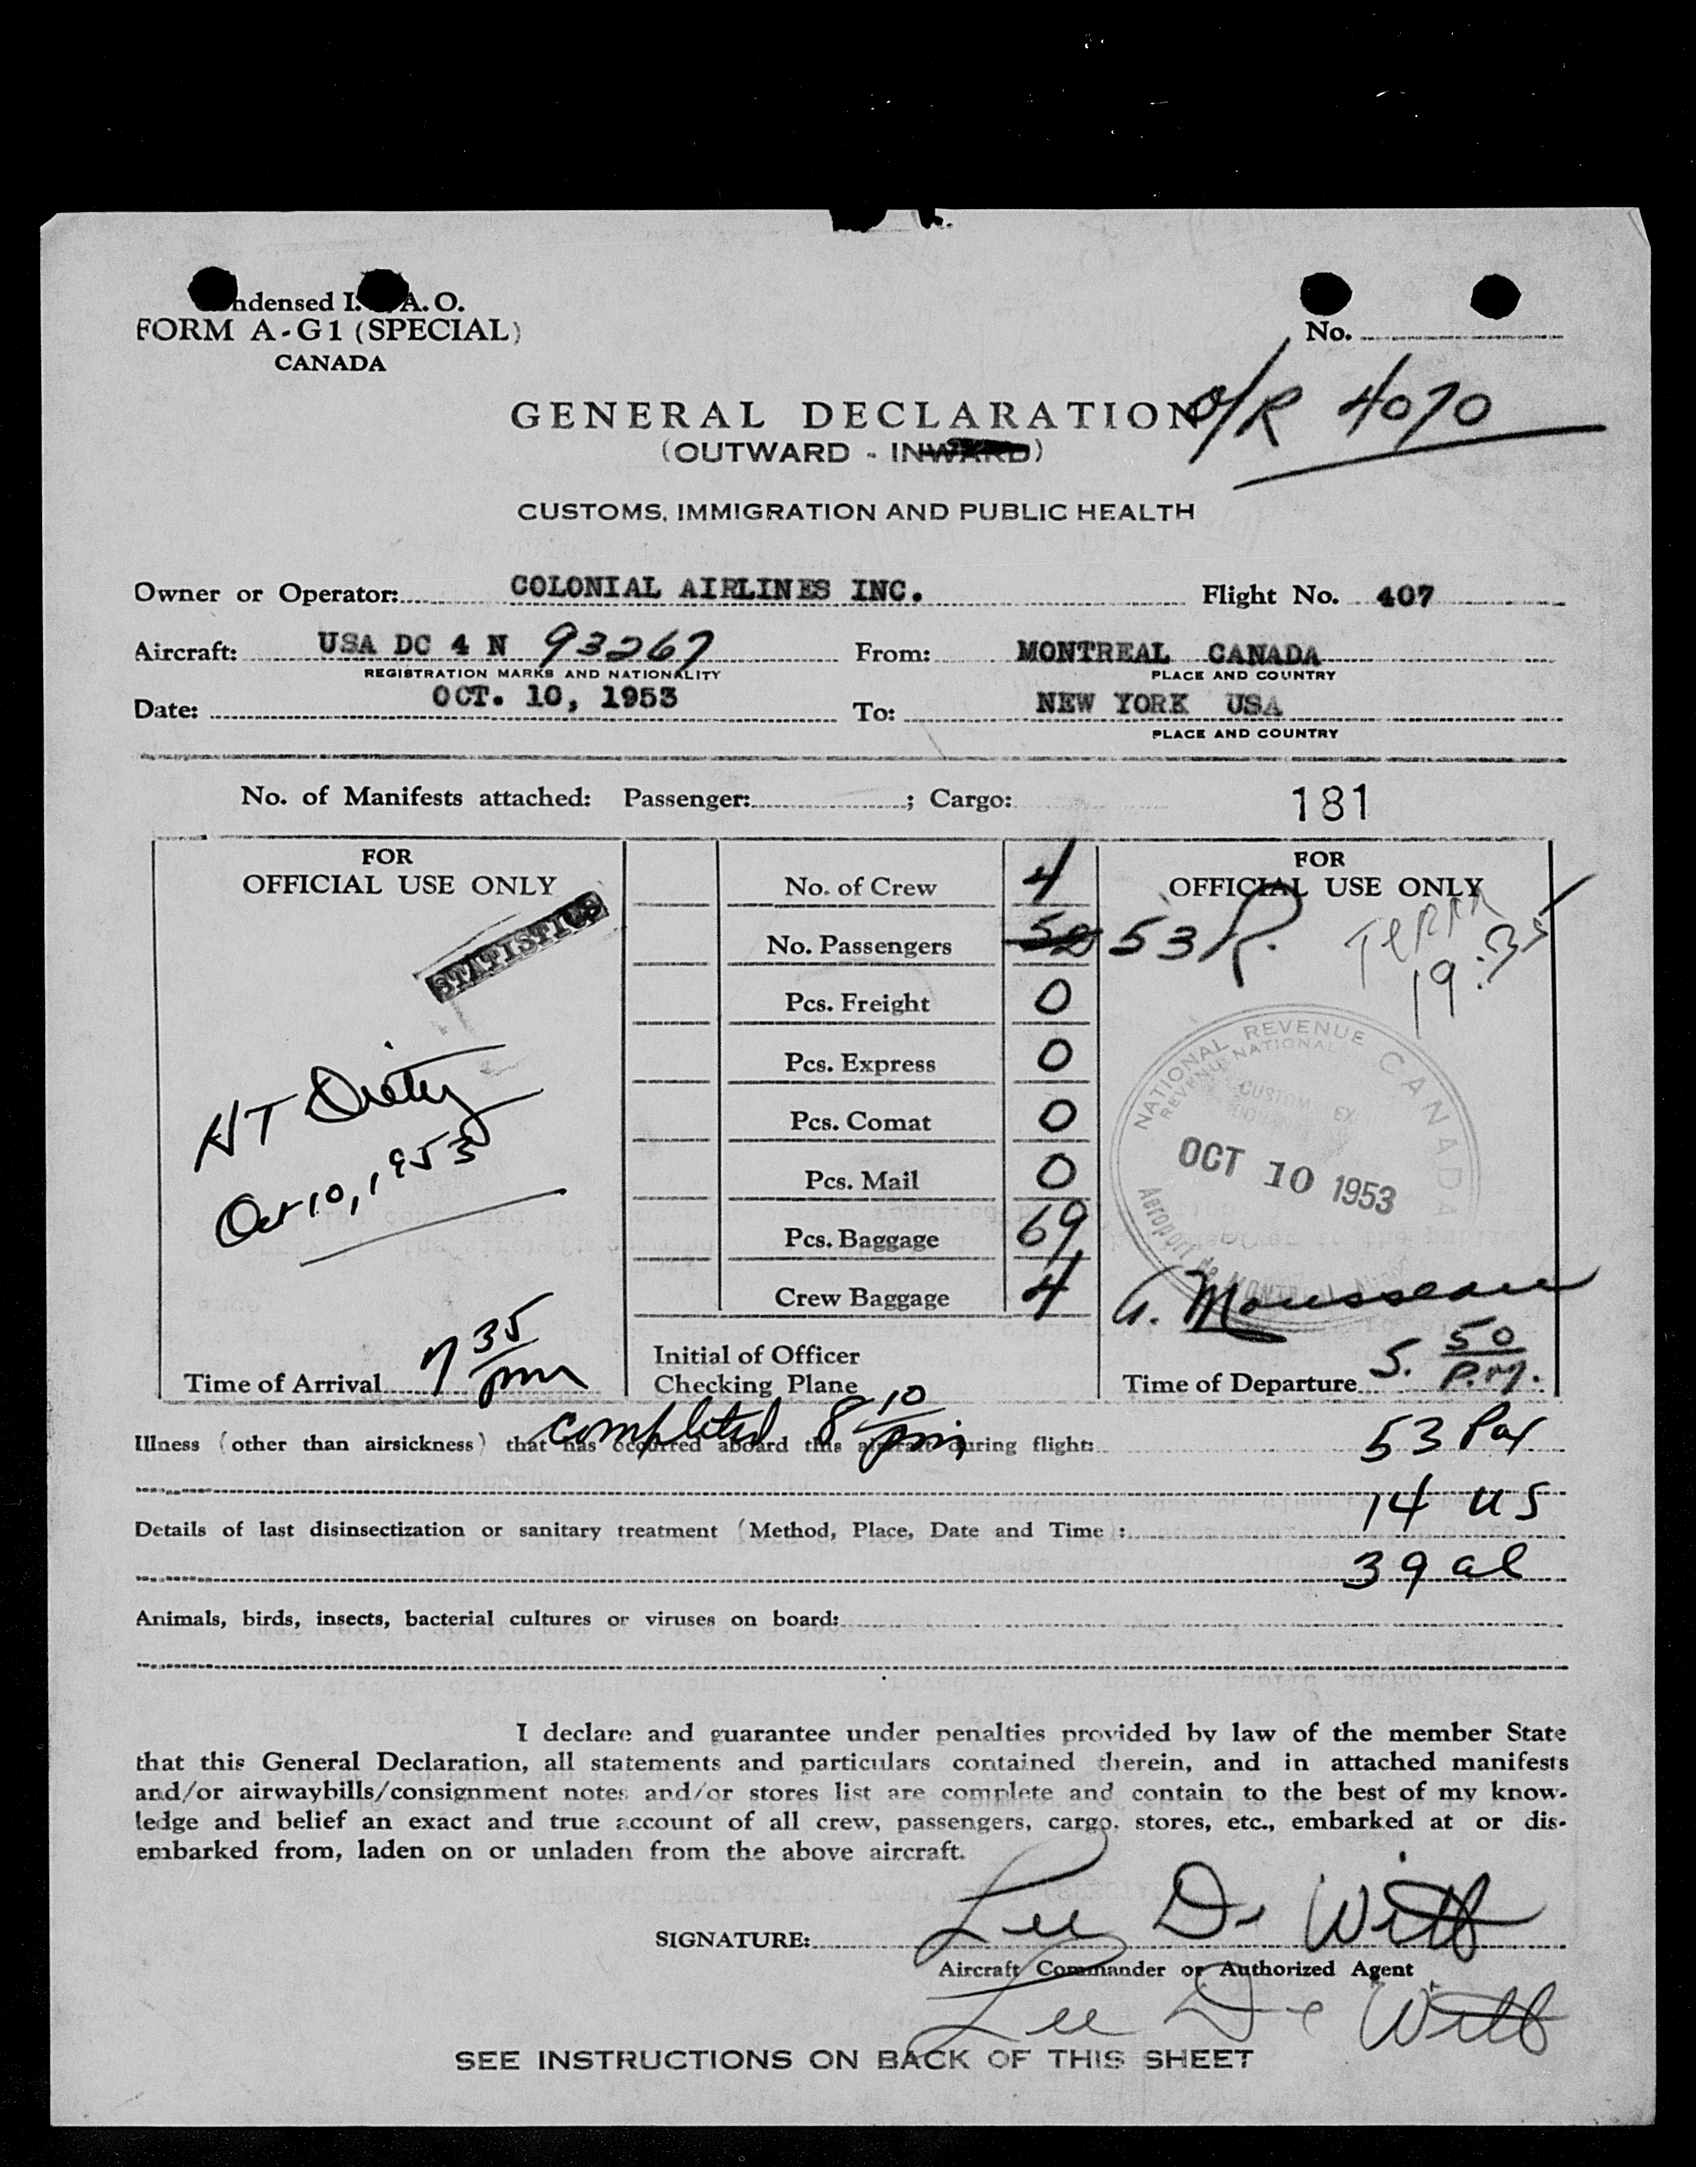 ndensed I. A. O.
FORM A-G1 (SPECIAL)
CANADA
No.
O/R 4070
GENERAL DECLARATION
(OUTWARD - INWARD)
CUSTOMS, IMMIGRATION AND PUBLIC HEALTH
Owner or Operator: COLONIAL AIRLINES INC. Flight No. 407
Aircraft: USA DC 4 N 93267 From: MONTREAL CANADA
REGISTRATION MARKS AND NATIONALITY PLACE AND COUNTRY
Date: OCT. 10, 1953 To: NEW YORK USA
PLACE AND COUNTRY
No. of Manifests attached: Passenger: ; Cargo: 181
FOR
OFFICIAL USE ONLY
STATISTICS
HT
Oct 10, 1953
Time of Arrival 7 35 pm
No. of Crew 4
No. Passengers 52 53 R.
Pcs. Freight 0
Pcs. Express 0
Pcs. Comat 0
Pcs. Mail 0
Pcs. Baggage 69
Crew Baggage 4
Initial of Officer
Checking Plane
FOR
OFFICIAL USE ONLY
19:35
NATIONAL REVENUE CANADA
REVENUE NATIONAL
OCT 10 1953
Aeroport de
G. Mousseau
Time of Departure 5. 50 P.M.
completed 8 10 pm
Illness (other than airsickness) that has occurred aboard this aircraft during flight: 53 Pax
14 US
Details of last disinsectization or sanitary treatment (Method, Place, Date and Time):
39 al
Animals, birds, insects, bacterial cultures or viruses on board:
I declare and guarantee under penalties provided by law of the member State
that this General Declaration, all statements and particulars contained therein, and in attached manifests
and/or airwaybills/consignment notes and/or stores list are complete and contain to the best of my know-
ledge and belief an exact and true account of all crew, passengers, cargo, stores, etc., embarked at or dis-
embarked from, laden on or unladen from the above aircraft.
SIGNATURE: Lee De Witt
Aircraft Commander or Authorized Agent
Lee De Witt
SEE INSTRUCTIONS ON BACK OF THIS SHEET